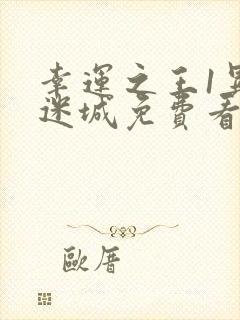 幸運之王1異
迷城免費看
歐厝